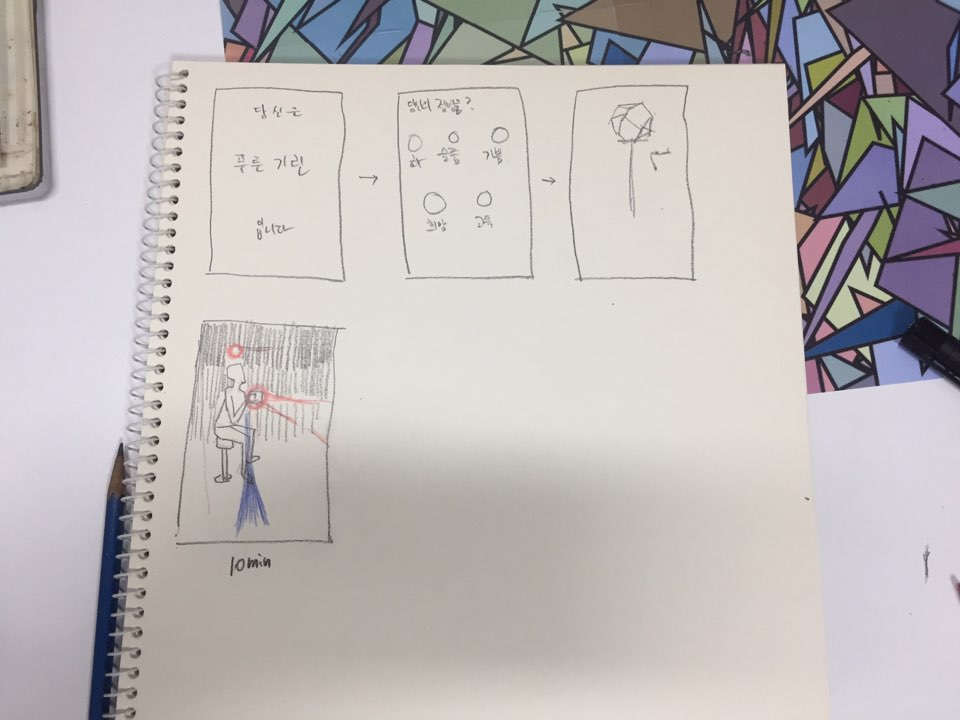 당신은
푸른 기린
입니다
당신의 감정은?
화 슬픔 기쁨
희망 고독
10min